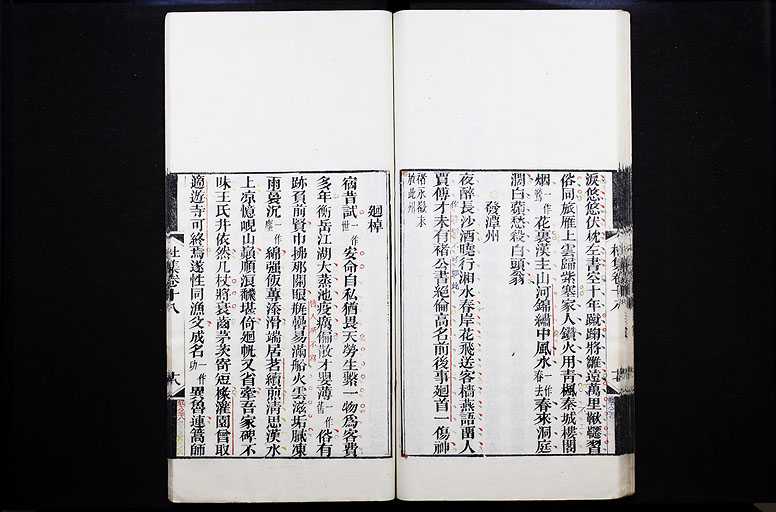 淚悠悠伏枕左書空十年蹴踘將雛遠萬里鞦韆習
俗同旅雁上雲歸紫塞家人鑽火用青楓秦城樓閣
烟一作鶯花裏漢主山河錦繡中風水一作春去春來洞庭
濶白蘋愁殺白頭翁
發潭州
夜醉長沙酒曉行湘水春岸花飛送客檣燕語留人
賈傅才未有褚公書絕倫高名前後事迴首一傷神
褚永徽末
放此州
迴棹
宿昔試一作世安命自私猶畏天勞生繫一物爲客費
多年衡岳江湖大蒸池疫癘偏散才嬰薄一作舊俗有
跡負前賢巾拂那關眼瓶罍易滿船火雲滋垢膩凍
雨裛沉一作塵綿强飯蓴添滑端居茗續煎清思漢水
上凉憶峴山巔順浪翻堪倚迴帆又省牽吾家碑不
昧王氏井依然几杖將衰齒茅茨寄短椽灌園曾取
適遊寺可終焉遂性同漁父成名一作功異魯連篙師
杜集卷十八
十八